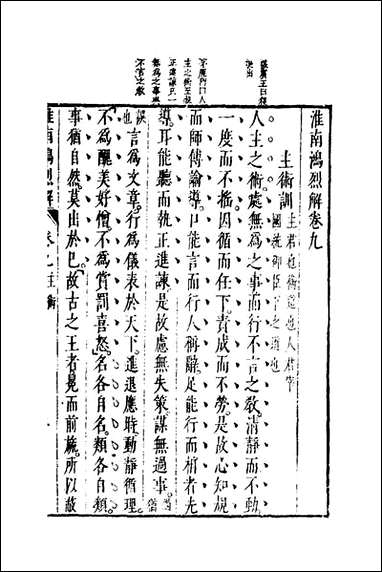 無為之事
不言之教
淮南鴻烈解卷九
主術訓
主君也術道也人君宰
國統御臣下之道也
人主之術處無為之事而行不言之教。清靜而不動
一度而不搖。因循而任下。責成而不勞。是故心知規
而師傅諭導。口能言而行人稱辭。足能行而相者先
導。耳能聽而執正進諫。是故慮無失策。謀無過事。
言為文章。行為儀表於天下。進退應時。動靜循理。
不為醜美好憎。不為賞罰喜怒。名各自名。類各自類。
事猶自然。莫出於已。故古之王者冕而前旒。所以蔽
淮南鴻烈解 卷九主術